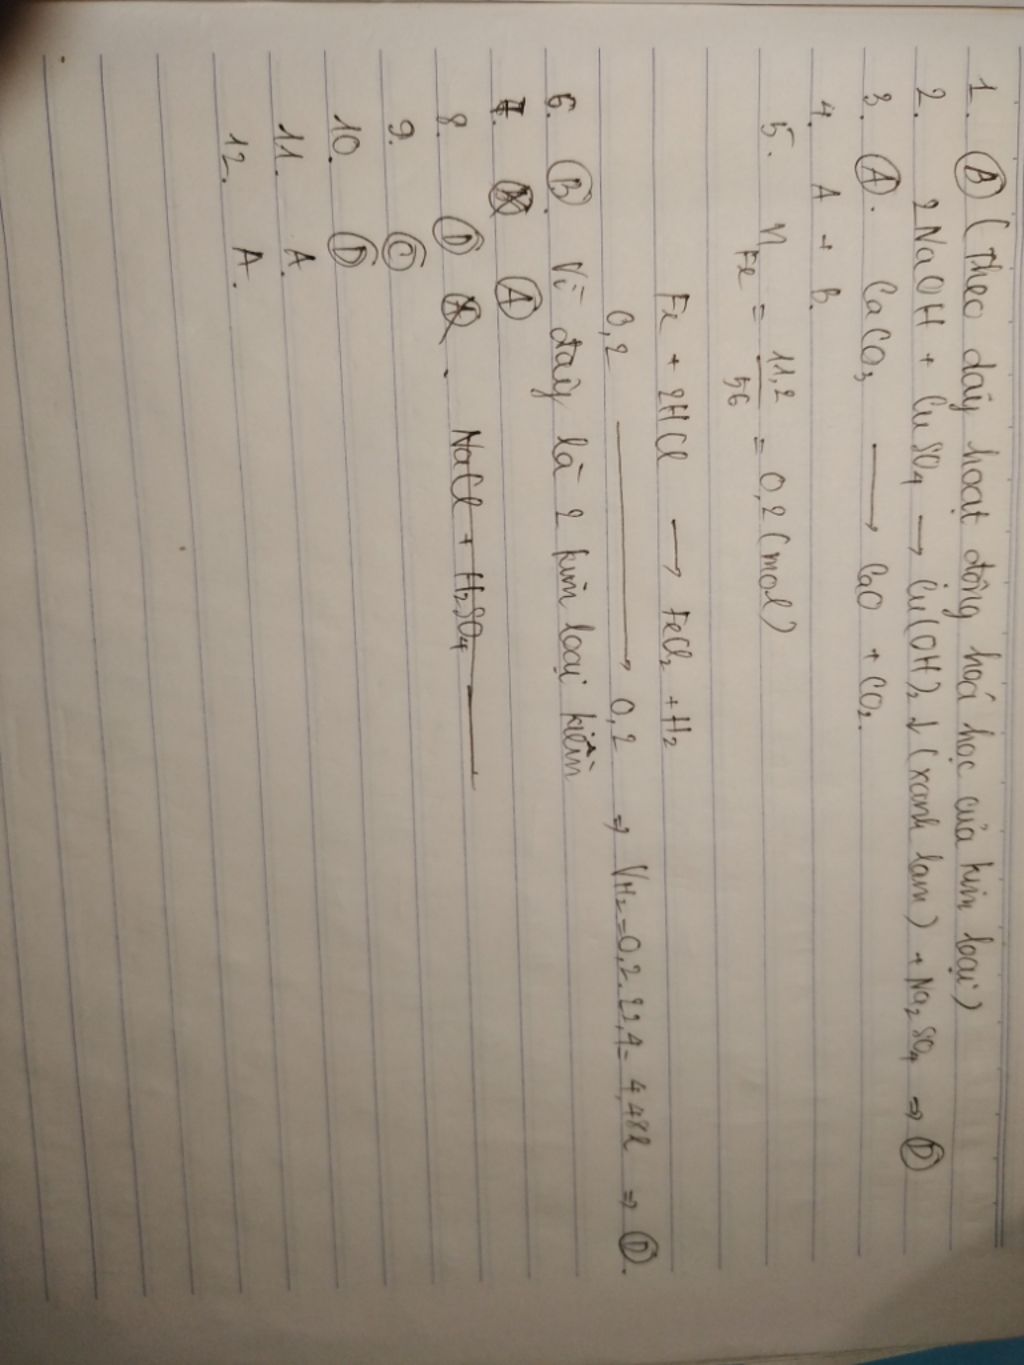 1. A (Theo dãy hoạt động hoá học của kim loại)
2. 2NaOH + CuSO4 → Cu(OH)2 ↓ (xanh lam) + Na2SO4 ⇒ D
3. A. CaCO3 → CaO + CO2.
4. A + B.
5. nFe = 11,2/56 = 0,2 (mol)
Fe + 2HCl → FeCl2 + H2
0,2 → 0,2 ⇒ VH2 = 0,2.22,4 = 4,48l ⇒ D.
6. B. Vì đây là 2 kim loại kiềm
7. A
8. D NaCl + H2SO4
9. C
10. D
11. A.
12. A.